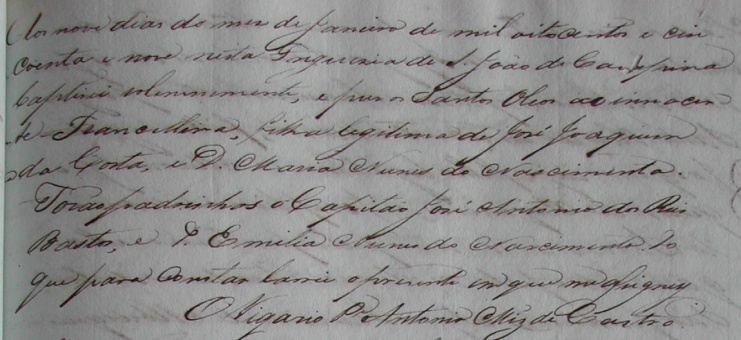 Aos nove dias do mez de Janeiro de mil oitocentos e cin
coenta e nove nesta Freguezia de S. João de
baptizei solemnemente, e puz os Santos Oleos ao innocen
te Francellina, filha legitima de José Joaquim
da Costa, e D. Maria Nunes do Nascimento.
Forão padrinhos o Capitão José Antonio dos Reis
Bastos, e D. Emilia Nunes do Nascimento. Do
que para constar o presente em que me assigney
O Vigario Pe Antonio Miz de Castro.